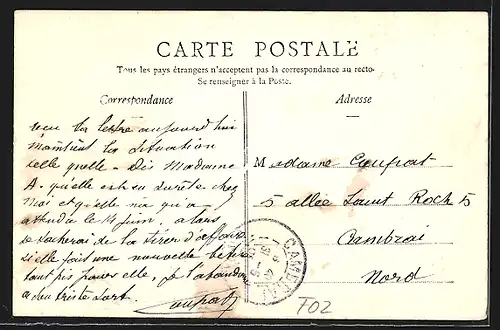 CARTE POSTALE
Tous les pays étrangers n'acceptent pas la correspondance au recto
Se renseigner à la Poste.
Correspondance
Adresse
ta lettre aujourd'hui
maintient la situation
telle quelle - Dis Madame
A. qu'elle est en sureté chez
moi et qu'elle n'a qu'a
attendre le 14 juin. alors
je tacherai de la tirer d'affaire
si elle fait une nouvelle
tant pis pour elle, je l'abandonne
a son triste sort.
Coupat
Madame Coupat
5 allée Saint Roch 5
Cambrai
Nord
CAMBRAI
T02